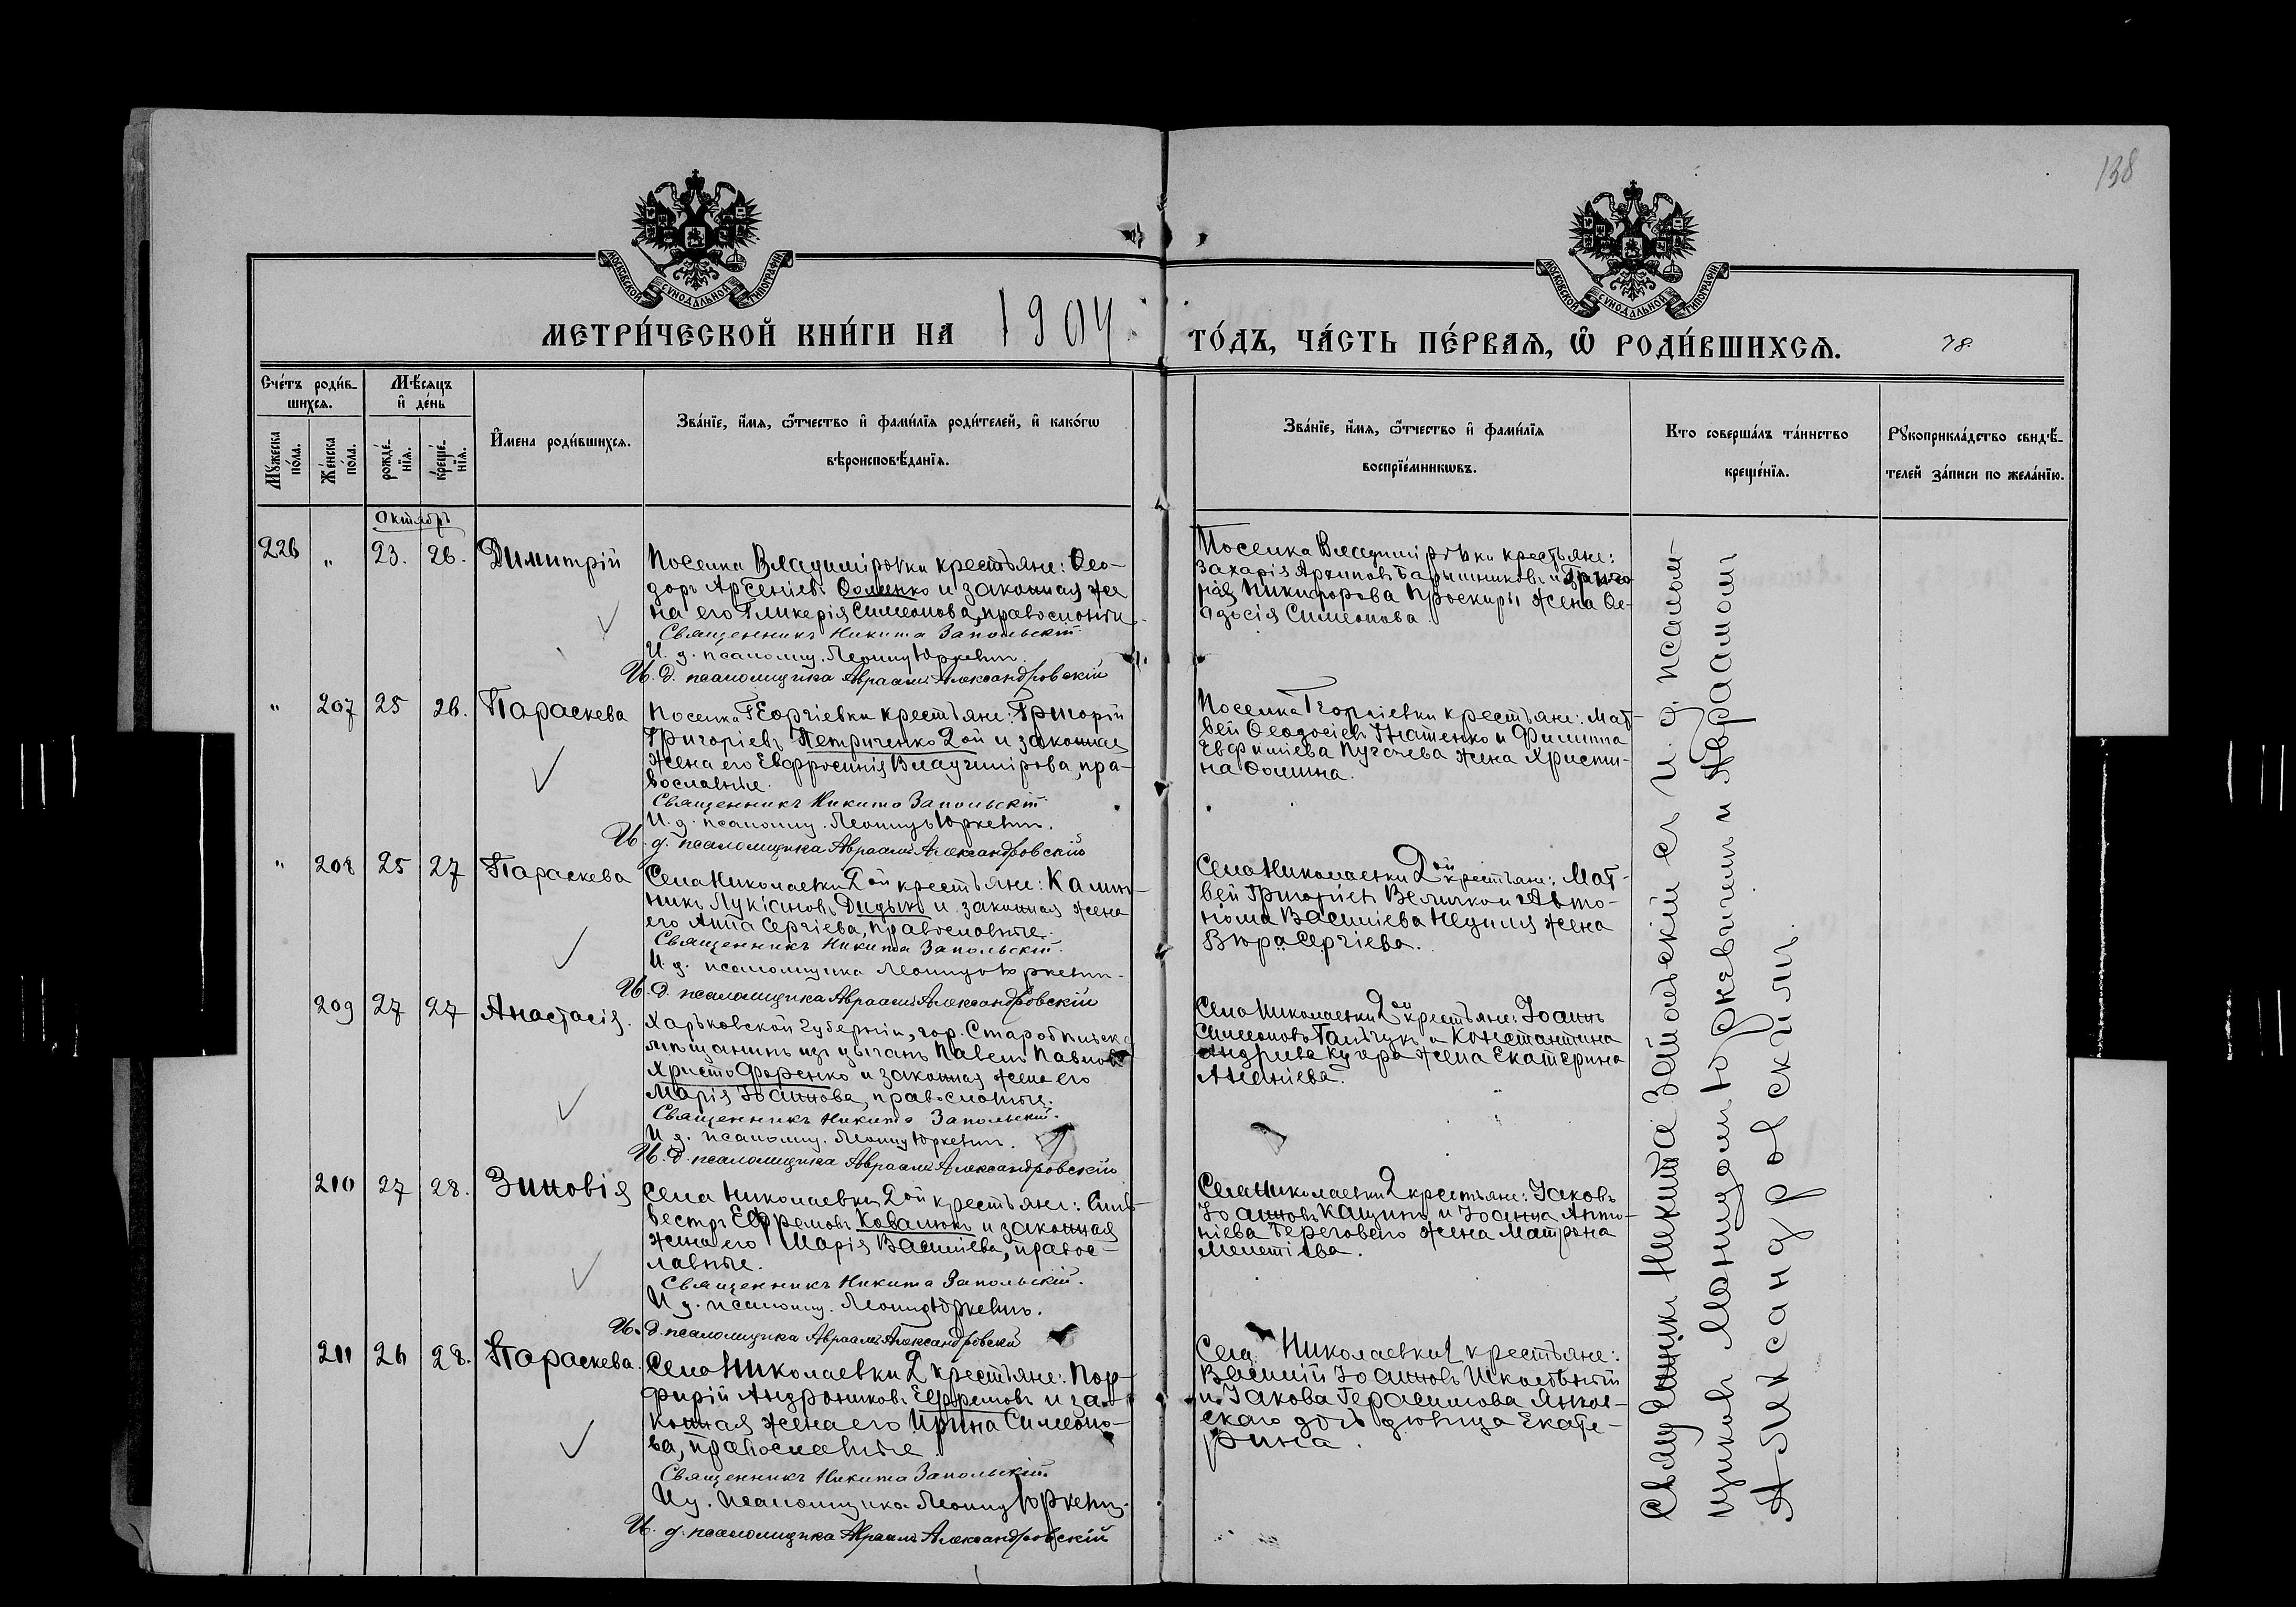 138
МОСКОВСКОЙ СѴНОДАЛЬНОЙ ТИПОГРАФІИ
МОСКОВСКОЙ СѴНОДАЛЬНОЙ ТИПОГРАФІИ
МЕТРИ́ЧЕСКОЙ КНИ́ГИ НА 1904
ГО́ДЪ, ЧА́СТЬ ПЕ́РВАѦ, Ѽ РОДИ́ВШИХСѦ.
78.
Сче́тъ роди́в-
шихсѧ.
Мѣ́сѧцъ
и҆ де́нь
Мꙋ́жеска по́ла.
Же́нска по́ла.
рожде́-
нїѧ.
креще́-
нїѧ.
И҆мена роди́вшихсѧ.
Зва́нїе, и҆́мѧ, ѻ҆́тчество и҆ фами́лїѧ роди́телей, и҆ како́гѡ
вѣроисповѣ́данїѧ.
Зва́нїе, и҆́мѧ, ѻ҆́тчество и҆ фами́лїѧ
воспрїе́мникѡвъ.
Кто соверша́лъ та́инство
креще́нїѧ.
Рꙋкоприкла́дство свидѣ́-
телей за́писи по жела́нїю.
Октябрь
226 " 23. 26. Димитрій
Поселка Владиміровки крестьяне: Ѳео-
доръ Арсеніевъ Ѳоменко и законная же
на его Гликерія Симеонова, православны
Священникъ Никита Запольскій
И. д. псаломщ. Леонид Юркевич.
И. д. псаломщика Авраамъ Александровскій
Поселка Владиміровки крестьяне:
Захарія Архиповъ Барышниковъ и Григо
рія Никифорова Проскуры жена Ѳе-
одосія Симеонова.
" 207 25 26. Параскева
Поселка Георгіевки крестьяне: Григорій
Григоріевъ Петриченко 2ой и законная
жена его Евфросинія Владимірова, пра-
вославные.
Священникъ Никита Запольскій
И. д. псаломщ. Леонидъ Юркевич.
И. д. псаломщика Авраамъ Александровскій
Поселка Георгіевки крестьяне: Мат-
вей Ѳеодосіевъ Игнатенко и Филиппа
Евфиміева Пугачева жена Христи-
на Ѳомина.
" 208 25 27 Параскева
Села Николаевки 2ой крестьяне: Калин-
никъ Лукіановъ Дидыкъ и законная жена
его Анна Сергіева, православные.
Священникъ Никита Запольскій.
И. д. псаломщика Леонид Юркевич.
И. д. псаломщика Авраамъ Александровскій
Села Николаевки 2ой крестьяне: Мат-
вей Григоріевъ Величко и Авто-
нома Василіева жена
Вѣра Сергіева.
209 27 27 Анастасія.
Харьковской губерніи, гор. Старобѣльска
мѣщанинъ изъ цыганъ Павелъ Павловъ
Христофоренко и законная жена его
Марія Іоаннова, православные.
Священникъ Никита Запольскій.
И. д. псаломщ. Леонид Юркевич.
И. д. псаломщика Авраамъ Александровскій
Села Николаевки 2ой крестьяне: Іоаннъ
Симеоновъ и Константина
Андреева Кучера жена Екатерина
210 27 28. Зиновія
Села Николаевки 2ой крестьяне: Силь-
вестръ Ефремовъ Ковалюкъ и законная
жена его Марія Василіева, правос-
лавные.
Священникъ Никита Запольскій.
И. д. псаломщ. Леонид Юркевичъ.
И. д. псаломщика Авраамъ Александровскій
Села Николаевки 2 крестьяне: Іаковъ
Іоанновъ Кащинъ и Іоанна Анто-
ніева Берегового жена Матрона
Мелетіева.
211 26 28. Параскева.
Села Николаевки 2 крестьяне: Пор-
фирій Андрониковъ Ефремовъ и за-
конная жена его Ирина Симеоно-
ва, православные.
Священникъ Никита Запольскій
И д. псаломщика Леонид Юркевич.
И. д. псаломщика Авраамъ Александровскій
Села Николаевки 2 крестьяне:
Василій Іоанновъ
и Іакова Герасимова
дочь дѣвица Екате-
рина.
Священникъ Никита Запольскій съ И. д. псалом-
щиковъ Леонидомъ Юркевичемъ и Авраамомъ
Александровскимъ.